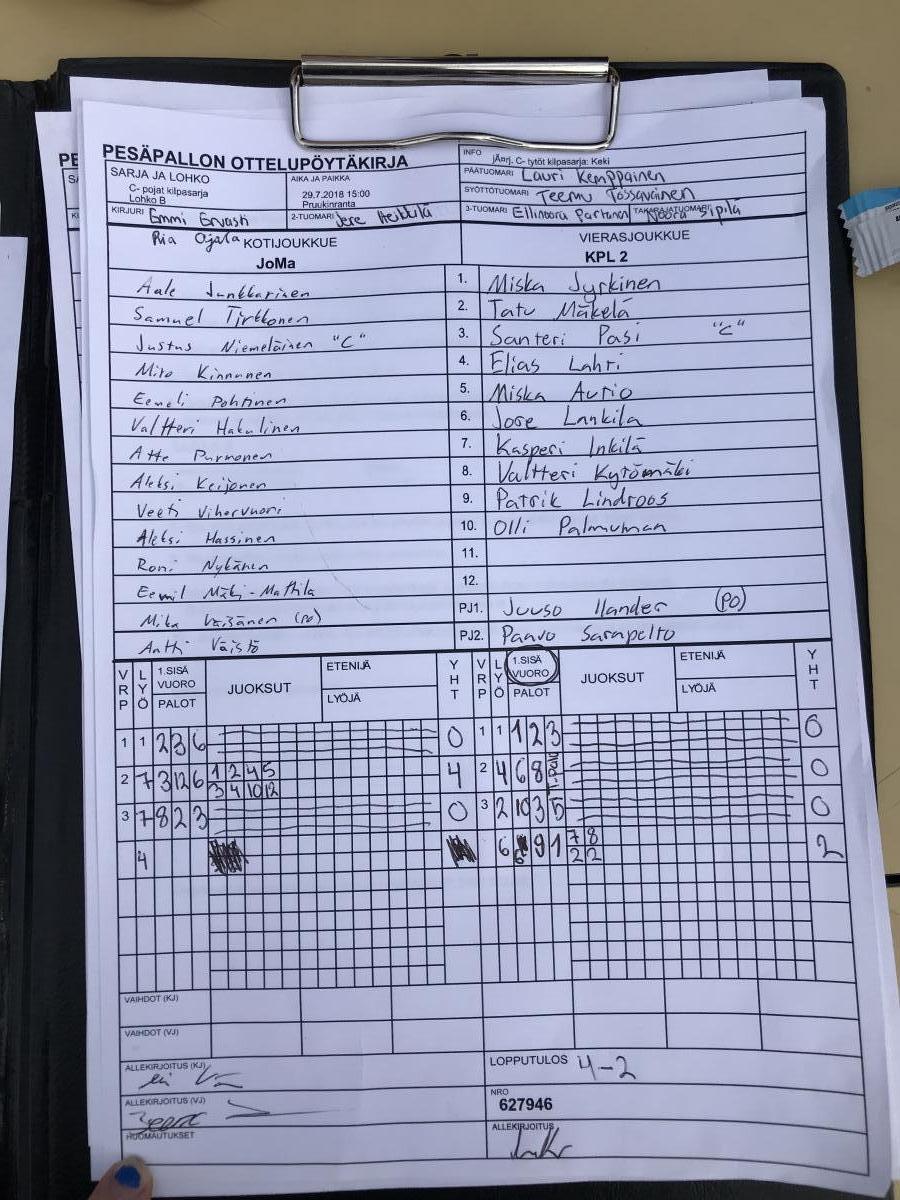 PESÄPALLON OTTELUPÖYTÄKIRJA
INFO
jÄrrj. C- tytöt kilpasarja: Keki
SARJA JA LOHKO
C- pojat kilpasarja
Lohko B
AIKA JA PAIKKA
29.7.2018 15:00
Pruukinranta
PÄÄTUOMARI Lauri Kemppainen
SYÖTTÖTUOMARI Teemu Tossavainen
KIRJURI Emmi Ervasti
2-TUOMARI Jere Heikkilä
3-TUOMARI Ellinoora Partanen
TAKARAJATUOMARI Noora Sipilä
Ria Ojala
KOTIJOUKKUE
JoMa
VIERASJOUKKUE
KPL 2
Aale Junkkarinen 1. Miska Jyrkinen
Samuel Tirkkonen 2. Tatu Mäkelä
Justus Niemeläinen "C" 3. Santeri Pasi "C"
Miro Kinnunen 4. Elias Lahti
Eemeli Pohtinen 5. Miska Autio
Valtteri Hakulinen 6. Jore Lankila
Atte Purmonen 7. Kasperi Inkilä
Aleksi Keijonen 8. Valtteri Kytömäki
Veeti Vihervuori 9. Patrik Lindroos
Aleksi Hassinen 10. Olli Palmuman
Roni Nykänen 11.
Eemil Mäki-Mattila 12.
Mika Väisänen (PO) PJ1. Juuso Ilander (PO)
Antti Väistö PJ2. Paavo Sarapelto
VRP LYÖ 1.SISÄ VUORO PALOT JUOKSUT ETENIJÄ LYÖJÄ YHT VRP LYÖ 1.SISÄ VUORO PALOT JUOKSUT ETENIJÄ LYÖJÄ YHT
1 1 2 3 6 0 1 1 1 2 3 0
2 7 3 12 6 1 2 4 5 4 2 4 6 8 0
3 4 10 12
3 7 8 2 3 0 3 2 10 3 5 0
4 6 6 9 1 7 8 2
2 2
VAIHDOT (KJ)
VAIHDOT (VJ)
ALLEKIRJOITUS (KJ)
LOPPUTULOS 4-2
ALLEKIRJOITUS (VJ)
NRO
627946
HUOMAUTUKSET
ALLEKIRJOITUS